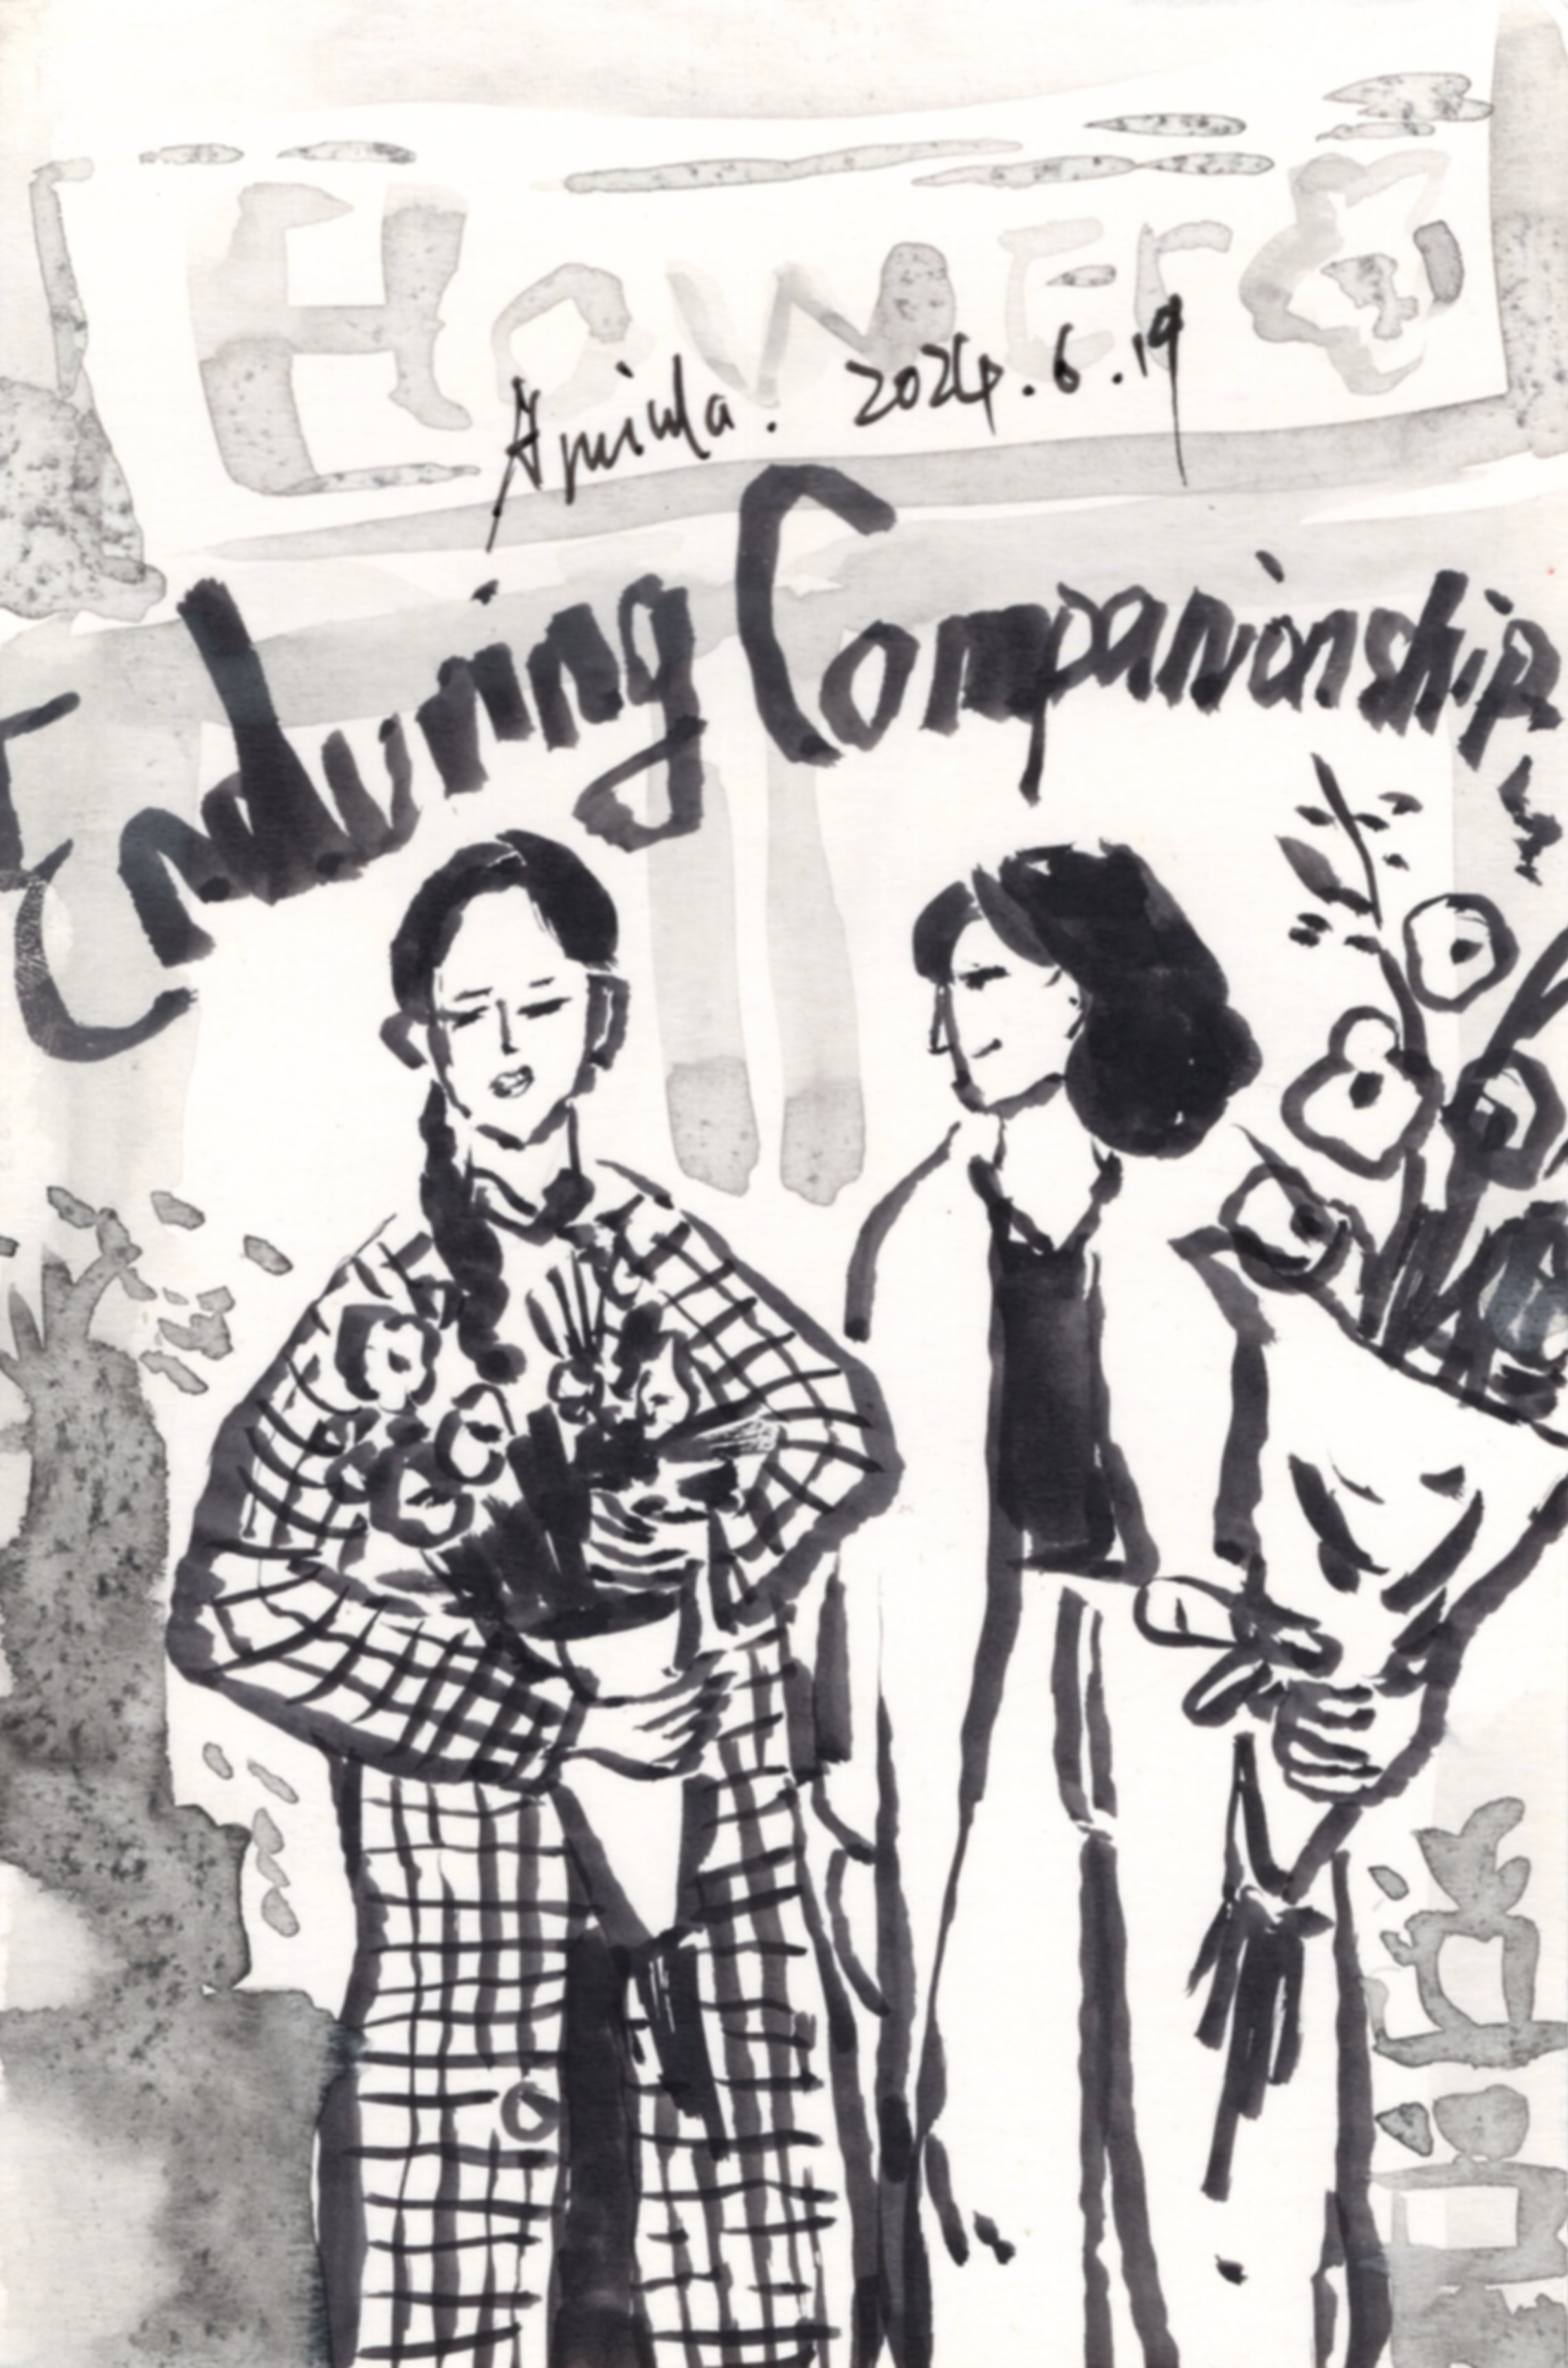 Flower
2024.6.19
Enduring Companionship